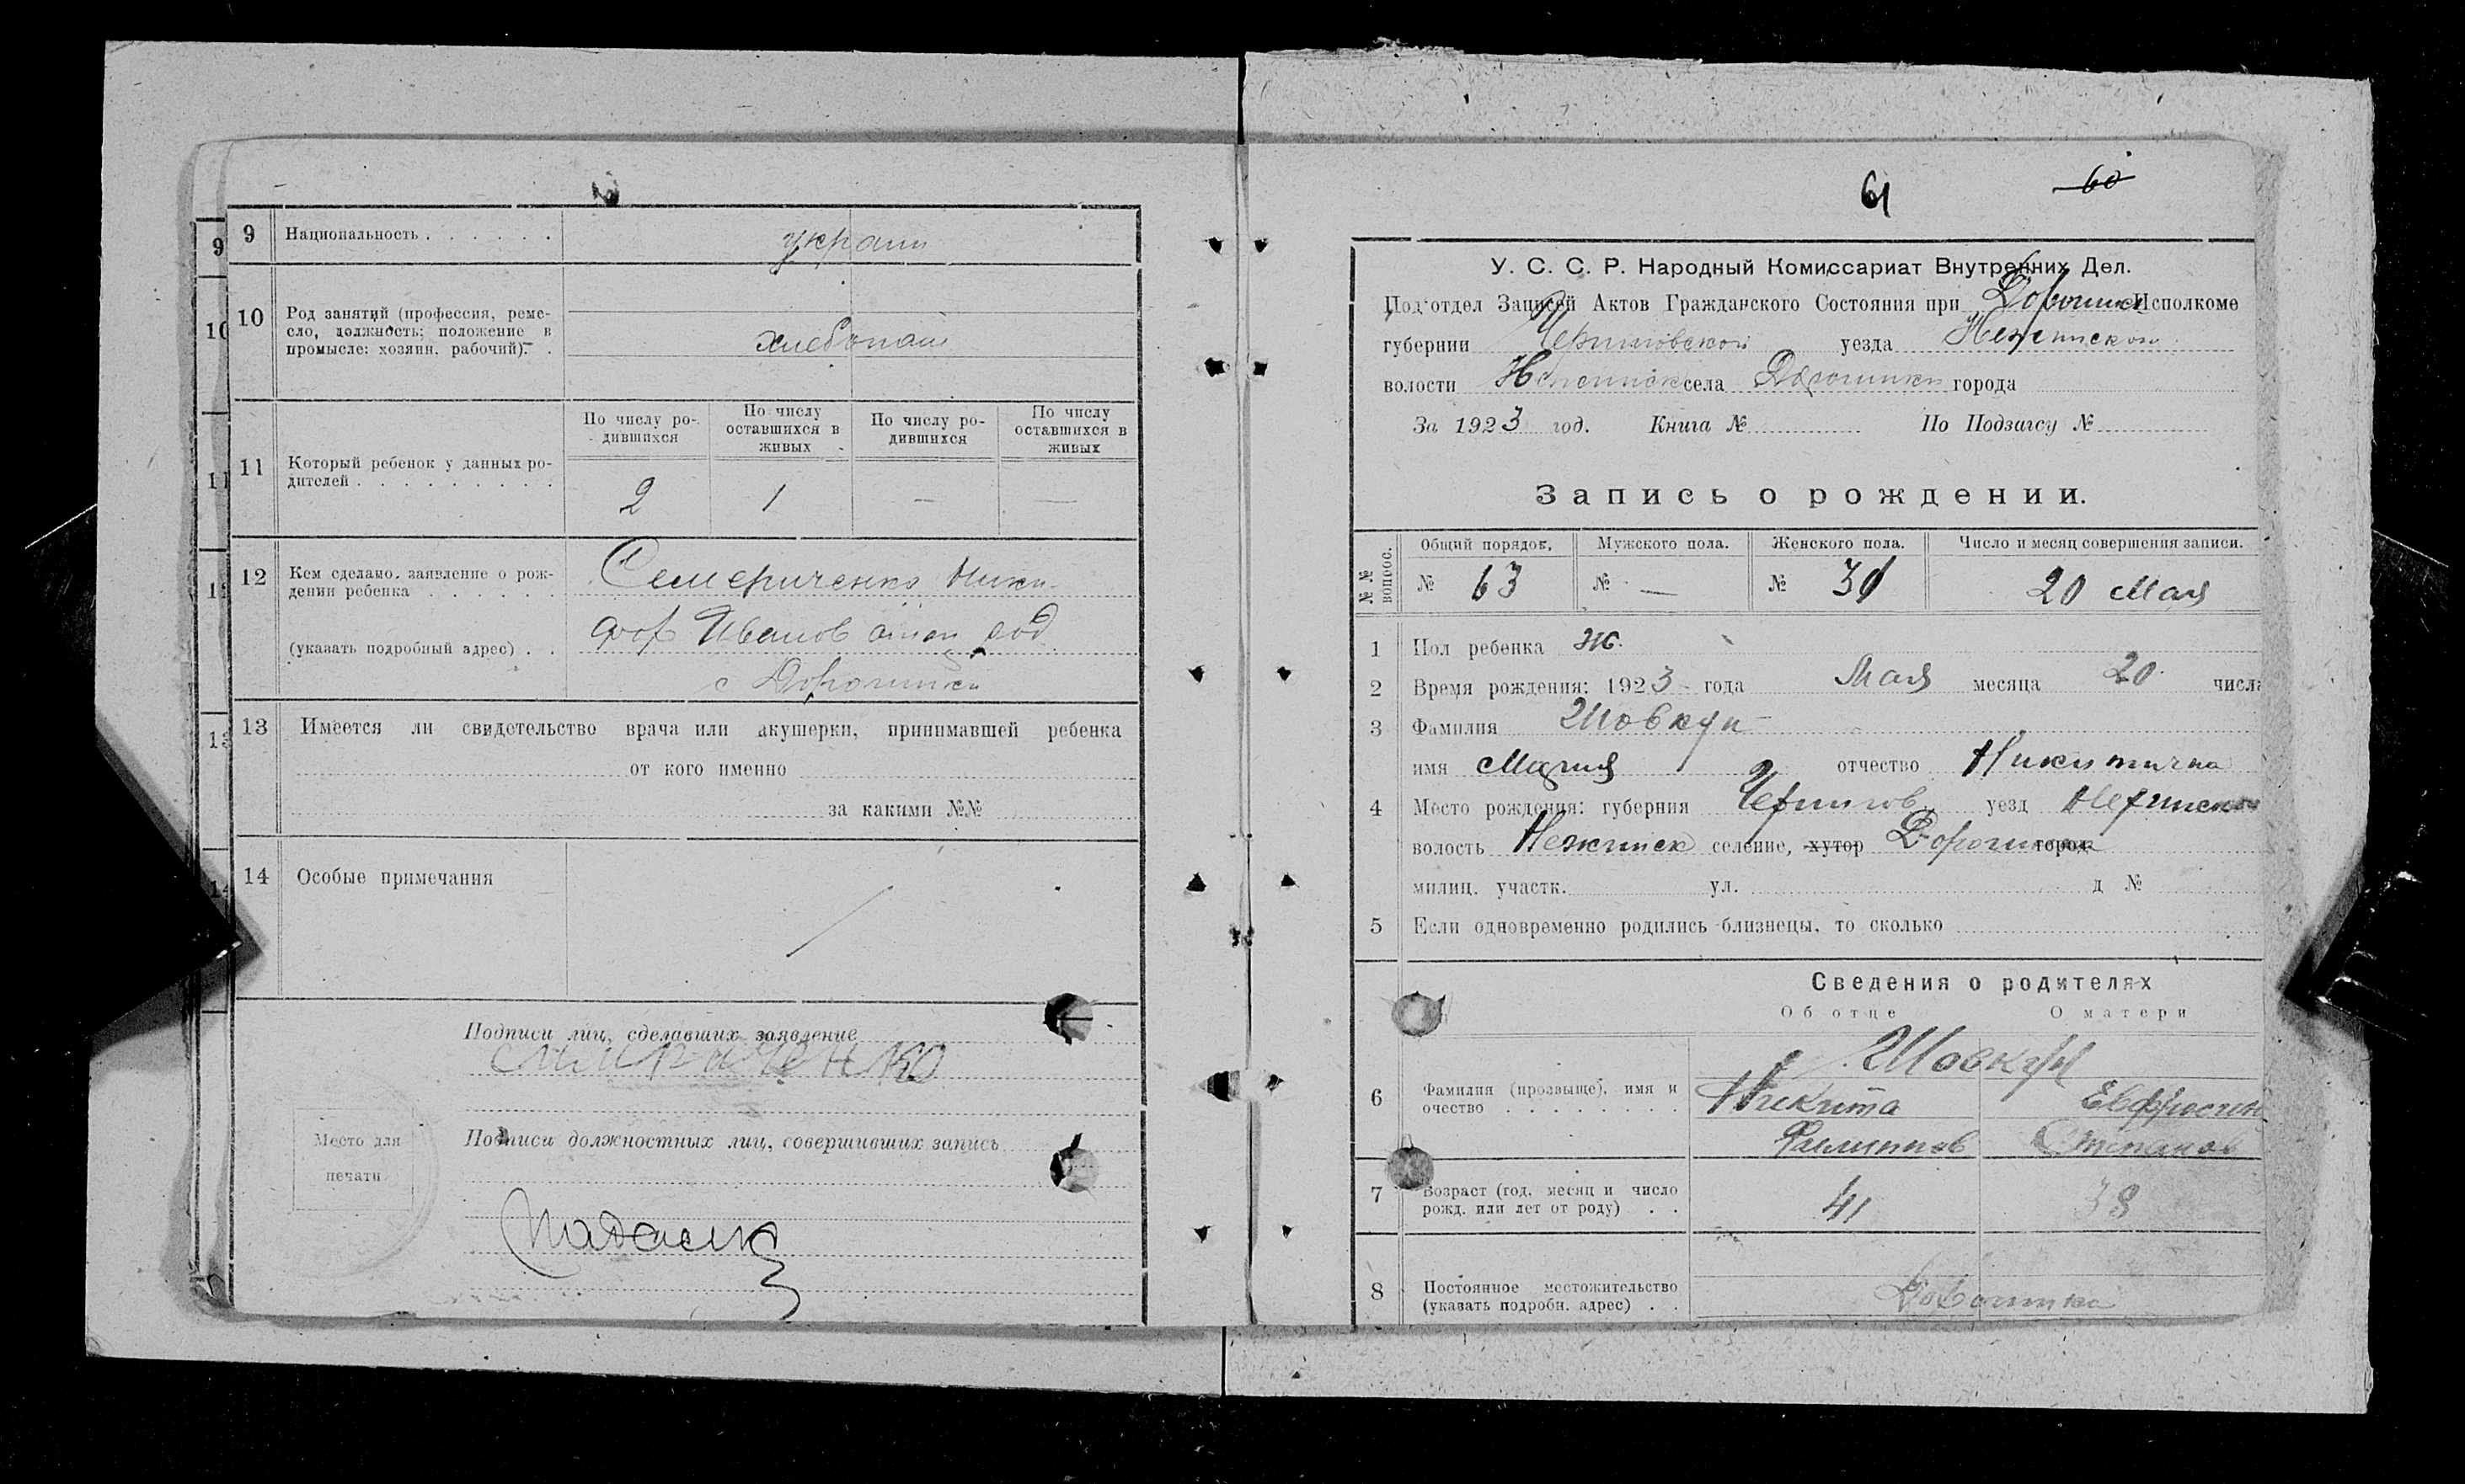 9 Национальность
украин
10 Род занятий (профессия, реме-
сло, должность; положение в
промысле: хозяин, рабочий).
хлебопаш
11 Который ребенок у данных ро-
дителей
По числу ро-
дившихся
По числу
оставшихся в
живых
По числу ро-
дившихся
По числу
оставшихся в
живых
2 1 — —
12 Кем сделано, заявление о рож-
дении ребенка
(указать подробный адрес)
Семериченко Ники-
фор Иванов
с Дорогинки
13 Имеется ли свидетельство врача или акушерки, принимавшей ребенка
от кого именно
за какими №№
14 Особые примечания
Подписи лиц, сделавших заявление
Подписи должностных лиц, совершивших запись
Место для
печати
61 60
У. С. С. Р. Народный Комиссариат Внутренних Дел.
Подотдел Записей Актов Гражданского Состояния при Дорогинск Исполкоме
губернии Черниговской уезда Нежинском
волости Нежинск села Дорогинки города
За 1923 год. Книга № По Подзагсу №
Запись о рождении.
№ № вопрос.
Общий порядок, Мужского пола. Женского пола. Число и месяц совершения записи.
№ 63 № — № 31 20 Мая
1 Пол ребенка ж.
2 Время рождения: 1923 года Мая месяца 20 числа
3 Фамилия Шовкун
имя Мария отчество Никитична
4 Место рождения: губерния Чернигов уезд Нежинском
волость Нежинск селение, хутор Дорогинка город
милиц. участк. ул. д №
5 Если одновременно родились близнецы, то сколько
Сведения о родителях
Об отце О матери
Шовкун
6 Фамилия (прозвище), имя и
очество
Никита Евфросин
Филиппов Степанов
7 Возраст (год, месяц и число
рожд. или лет от роду)
41 38
8 Постоянное местожительство
(указать подробн. адрес)
Дорогинка